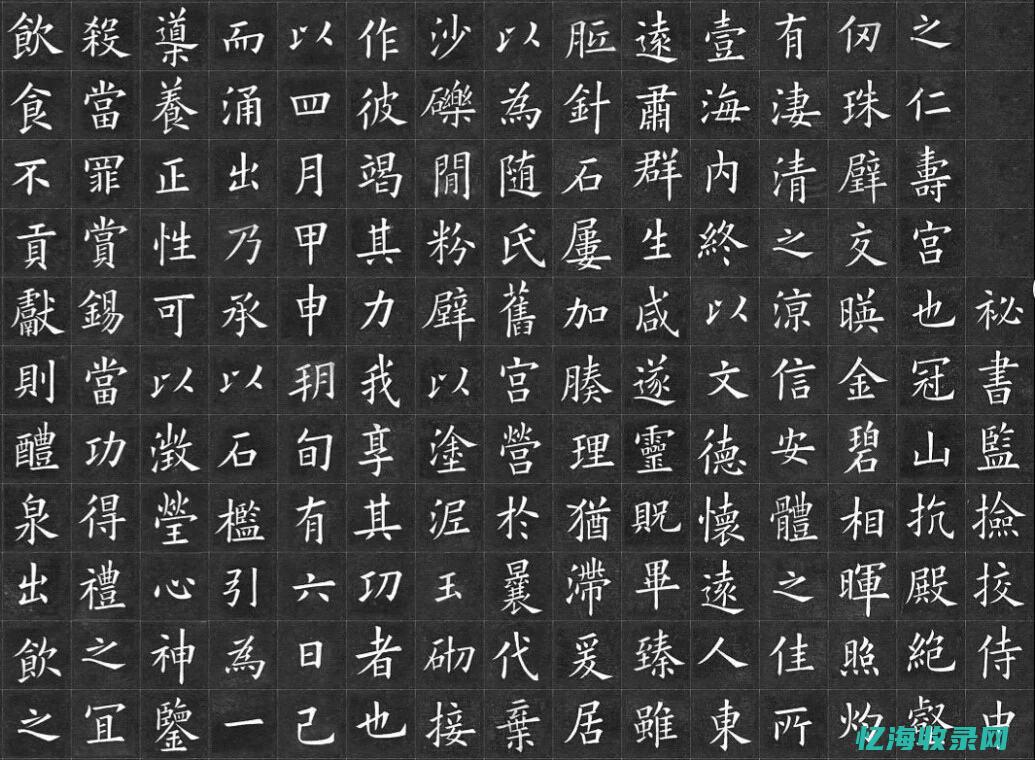 祕書監撿挍侍中
之仁壽宫也冠山抗殿絕壑
仞珠璧交暎金碧相暉照灼
有淒清之涼信安體之佳所
壹海内終以文德懷遠人東
遠肅群生咸遂靈貺畢臻雖
胝針石屢加腠理猶滯爰居
以為随氏舊宫營於曩代棄
沙礫閒粉壁以塗泥玉砌接
作彼竭其力我享其功者也
以四月甲申朔旬有六日己
而涌出乃承以石檻引為一
導養正性可以澂瑩心神鑒
殺當罪賞錫當功得禮之宜
飲食不貢獻則醴泉出飲之
忆海收录网